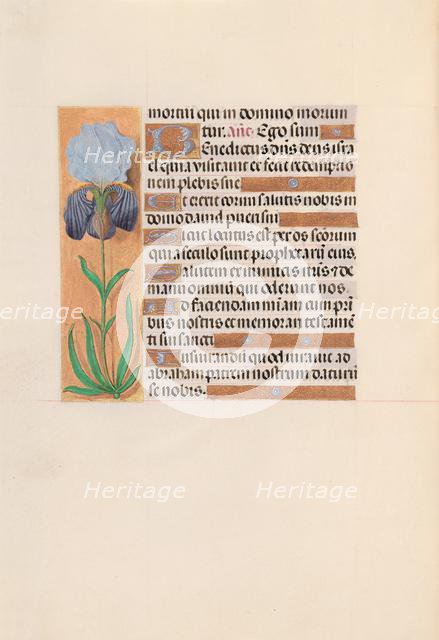 mortui qui in domino moriun
tur. Añe. Ego sum
Benedictus dñs deus isra
el quia visitauit et fecit redemptio
nem plebis sue
Et erexit cornu salutis nobis in
domo dauid pueri sui
Sicut locutus est per os scorum
qui a seculo sunt prophetarum eius.
Salutem ex inimicis nris ⁊ de
manu omnium qui oderunt nos.
Ad faciendam miam cum patri
bus nostris et memorari testame
ti sui sancti
Iusiurandum quod iurauit ad
abraham patrem nostrum daturū
se nobis.
Heritage
Heritage
Heritage
Heritage
Heritage
Heritage
Heritage